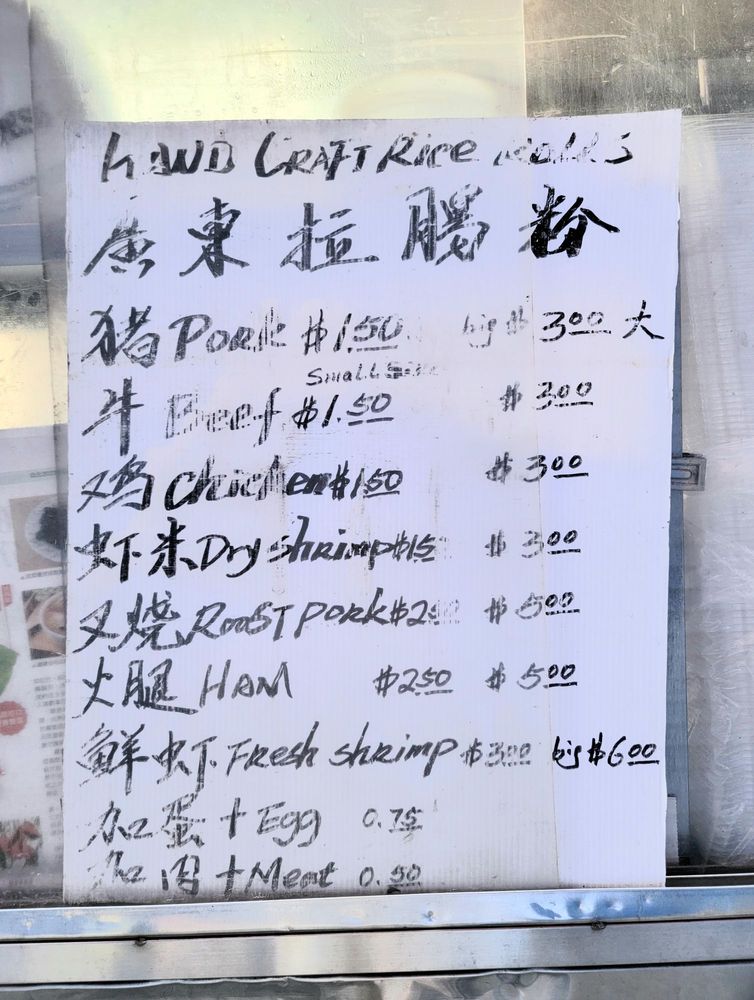 HAND CRAFT Rice Rolls
廣東拉腸粉
猪 Pork $1.50 big $3.00 大
Small Size
牛 Beef $1.50 $3.00
鸡 chicken $1.50 $3.00
虾米 Dry shrimp $1.5 $3.00
叉烧 Roast pork $2. $5.00
火腿 HAM $2.50 $5.00
鲜虾 Fresh shrimp $3.00 big $6.00
加蛋 + Egg 0.75
加肉 + Meat 0.50